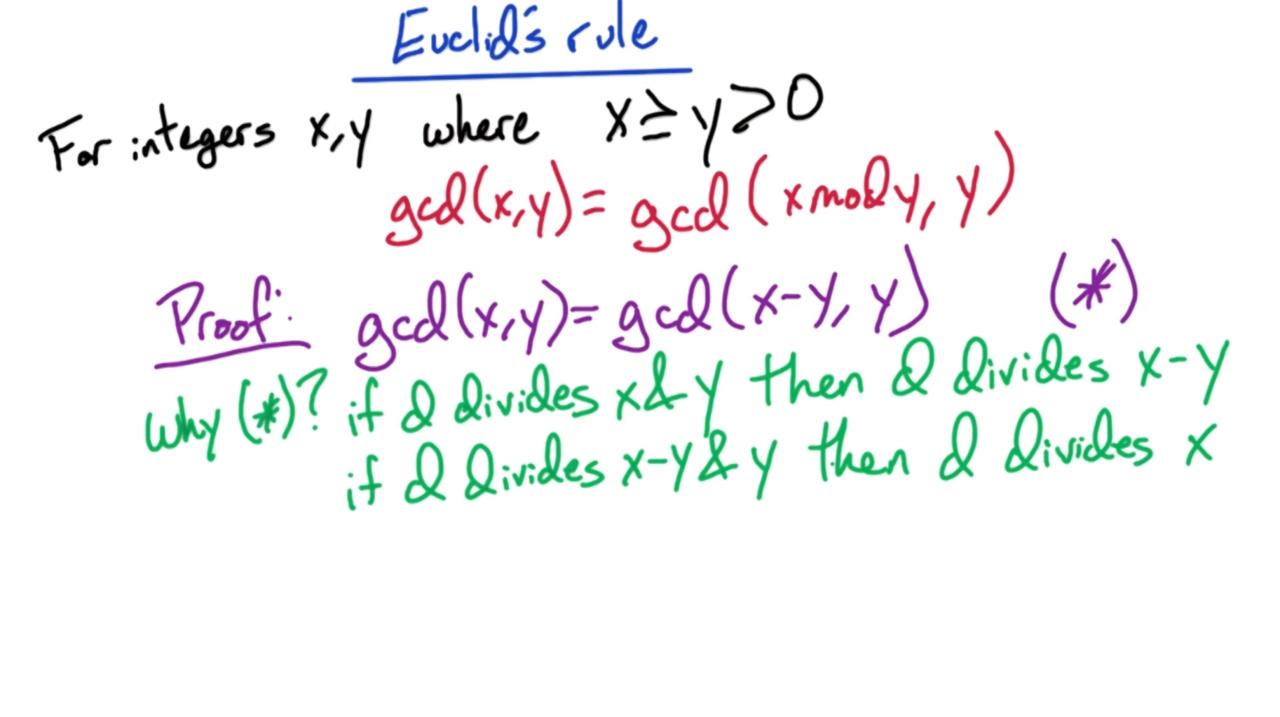 Euclid's rule
For integers x, y where x ≥ y > 0
gcd(x,y) = gcd(x mod y, y)
Proof: gcd(x,y) = gcd(x-y, y) (*)
Why (*)? if d divides x & y then d divides x-y
if d divides x-y & y then d divides x